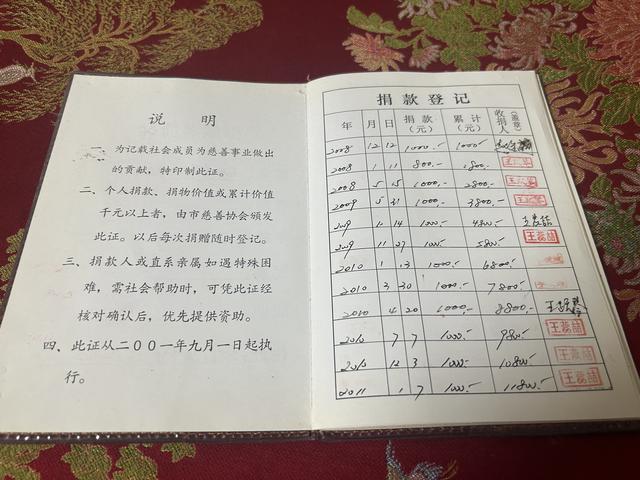 说 明
一、为记载社会成员为慈善事业做出
的贡献，特印制此证。
二、个人捐款、捐物价值或累计价值
千元以上者，由市慈善协会颁发
此证。以后每次捐赠随时登记。
三、捐款人或直系亲属如遇特殊困
难，需社会帮助时，可凭此证经
核对确认后，优先提供资助。
四、此证从二〇〇一年九月一日起执
行。
捐款登记
年 月 日 捐款（元） 累计（元） 收捐人（盖章）
2008 12 12 1000.- 1000.-
2008 1 11 800.- 1800.-
2008 5 15 1000.- 2800.-
2009 5 21 1000.- 3800.-
2009 10 14 1000.- 4800.-
2009 11 27 1000.- 5800.- 王蕊喆
2010 1 13 1000.- 6800.-
2010 3 30 1000.- 7800.-
2010 4 20 1000.- 8800.-
2010 7 7 1000.- 9800.- 王蕊喆
2010 12 3 1000.- 10800.- 王蕊喆
2011 1 7 1000.- 11800.- 王蕊喆